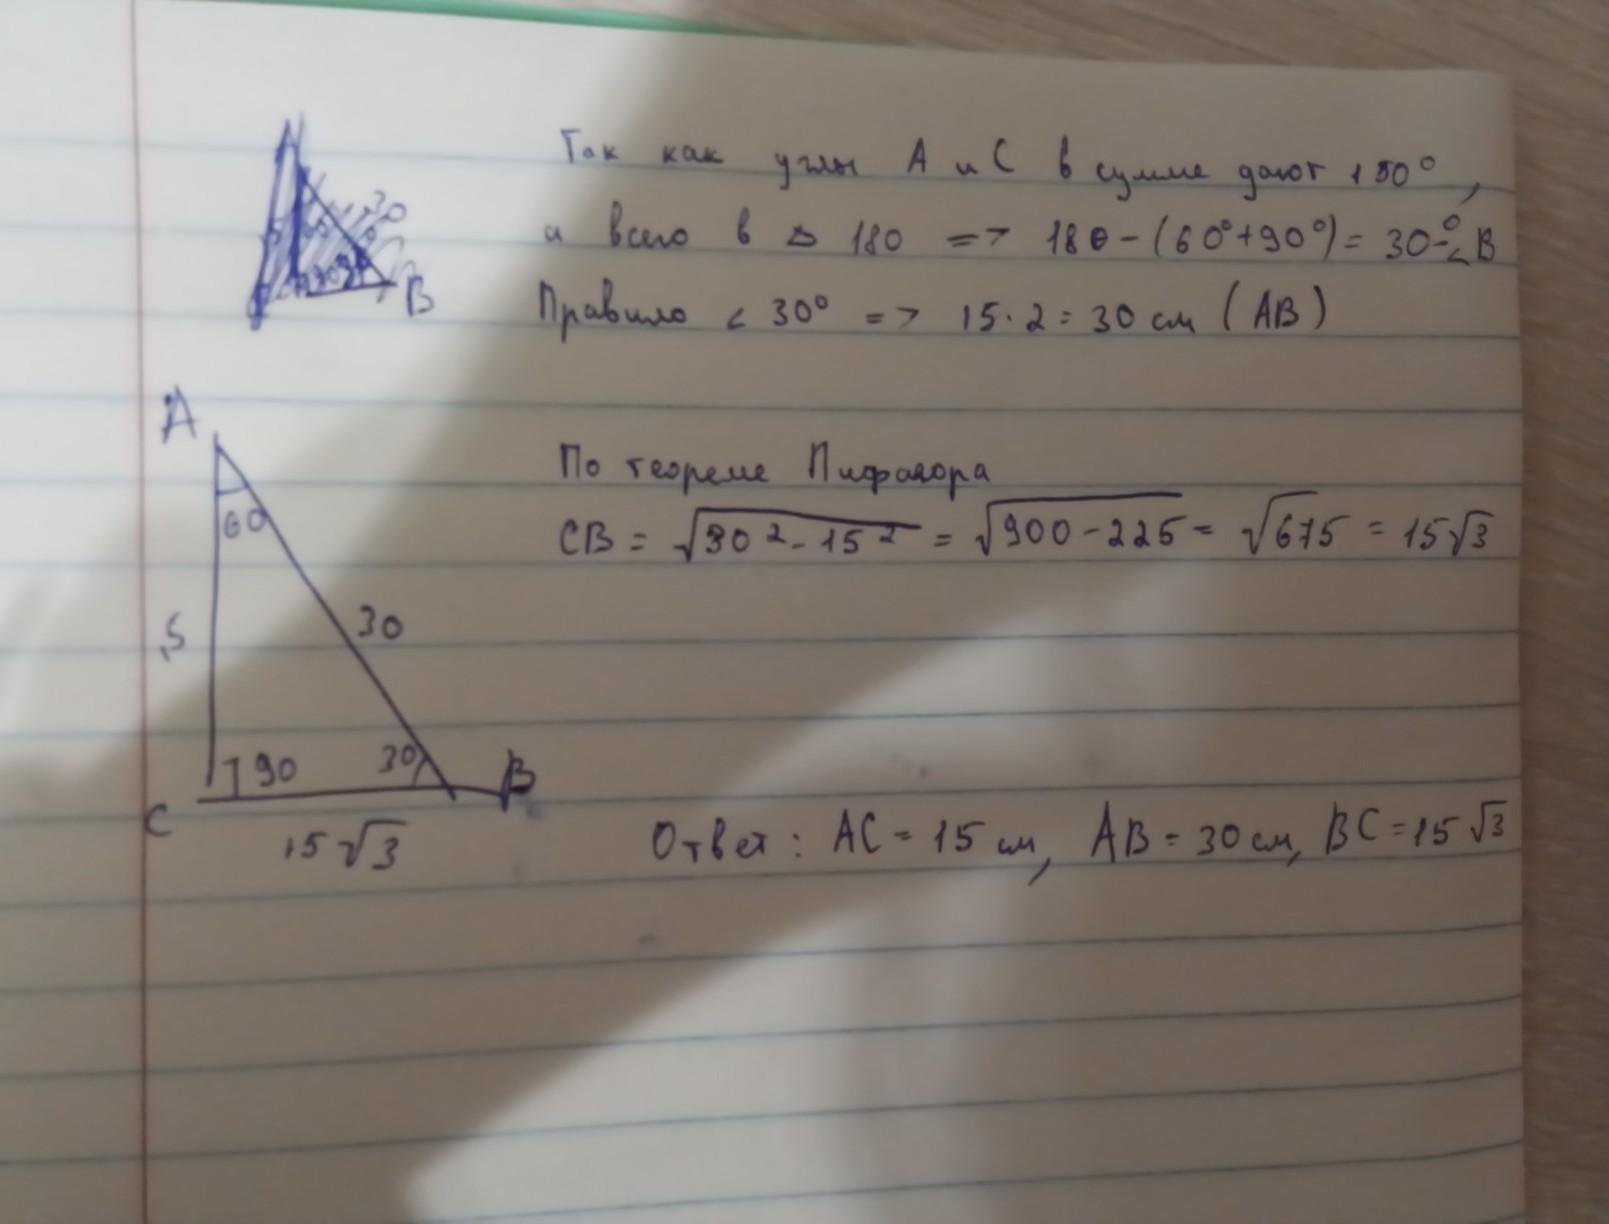 Так как углы A и C в сумме дают 150°,
а всего в △ 180 => 180-(60°+90°)=30°-∠B
Правило ∠ 30° => 15·2=30 см (AB)
B
A
60
15
30
90
30
C
B
15√3
По теореме Пифагора
CB = √30²-15² = √900-225 = √675 = 15√3
Ответ: AC = 15 см, AB = 30 см, BC = 15√3